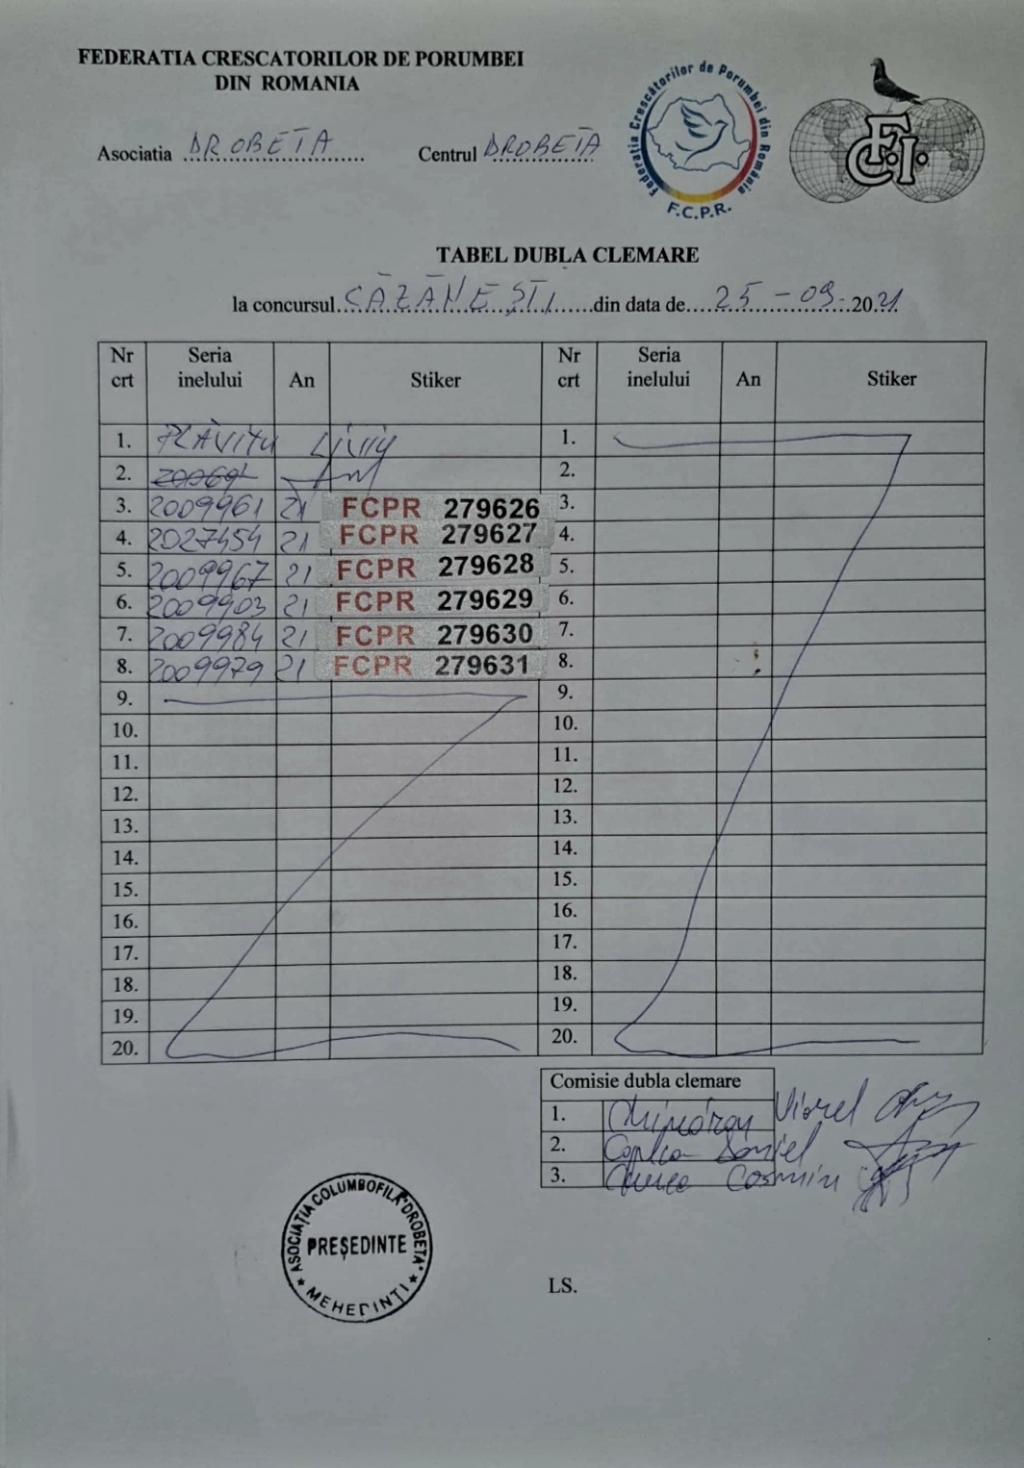 FEDERATIA CRESCATORILOR DE PORUMBEI
DIN ROMANIA
Asociatia DROBETA Centrul DROBETA
Federatia Crescătorilor de Porumbei din România
F.C.P.R.
F.C.I.
TABEL DUBLA CLEMARE
la concursul CĂZĂNEȘTI din data de 25-09-2021
Nr crt Seria inelului An Stiker Nr crt Seria inelului An Stiker
1. PLĂVIȚU LIVIU 1.
2. 2.
3. 2009961 21 FCPR 279626 3.
4. 2027454 21 FCPR 279627 4.
5. 2009967 21 FCPR 279628 5.
6. 2009903 21 FCPR 279629 6.
7. 2009984 21 FCPR 279630 7.
8. 2009979 21 FCPR 279631 8.
9. 9.
10. 10.
11. 11.
12. 12.
13. 13.
14. 14.
15. 15.
16. 16.
17. 17.
18. 18.
19. 19.
20. 20.
Comisie dubla clemare
1. Viorel
2. Daniel
3. Cosmin
ASOCIAȚIA COLUMBOFILĂ "DROBETA"
PREȘEDINTE
MEHEDINȚI
LS.